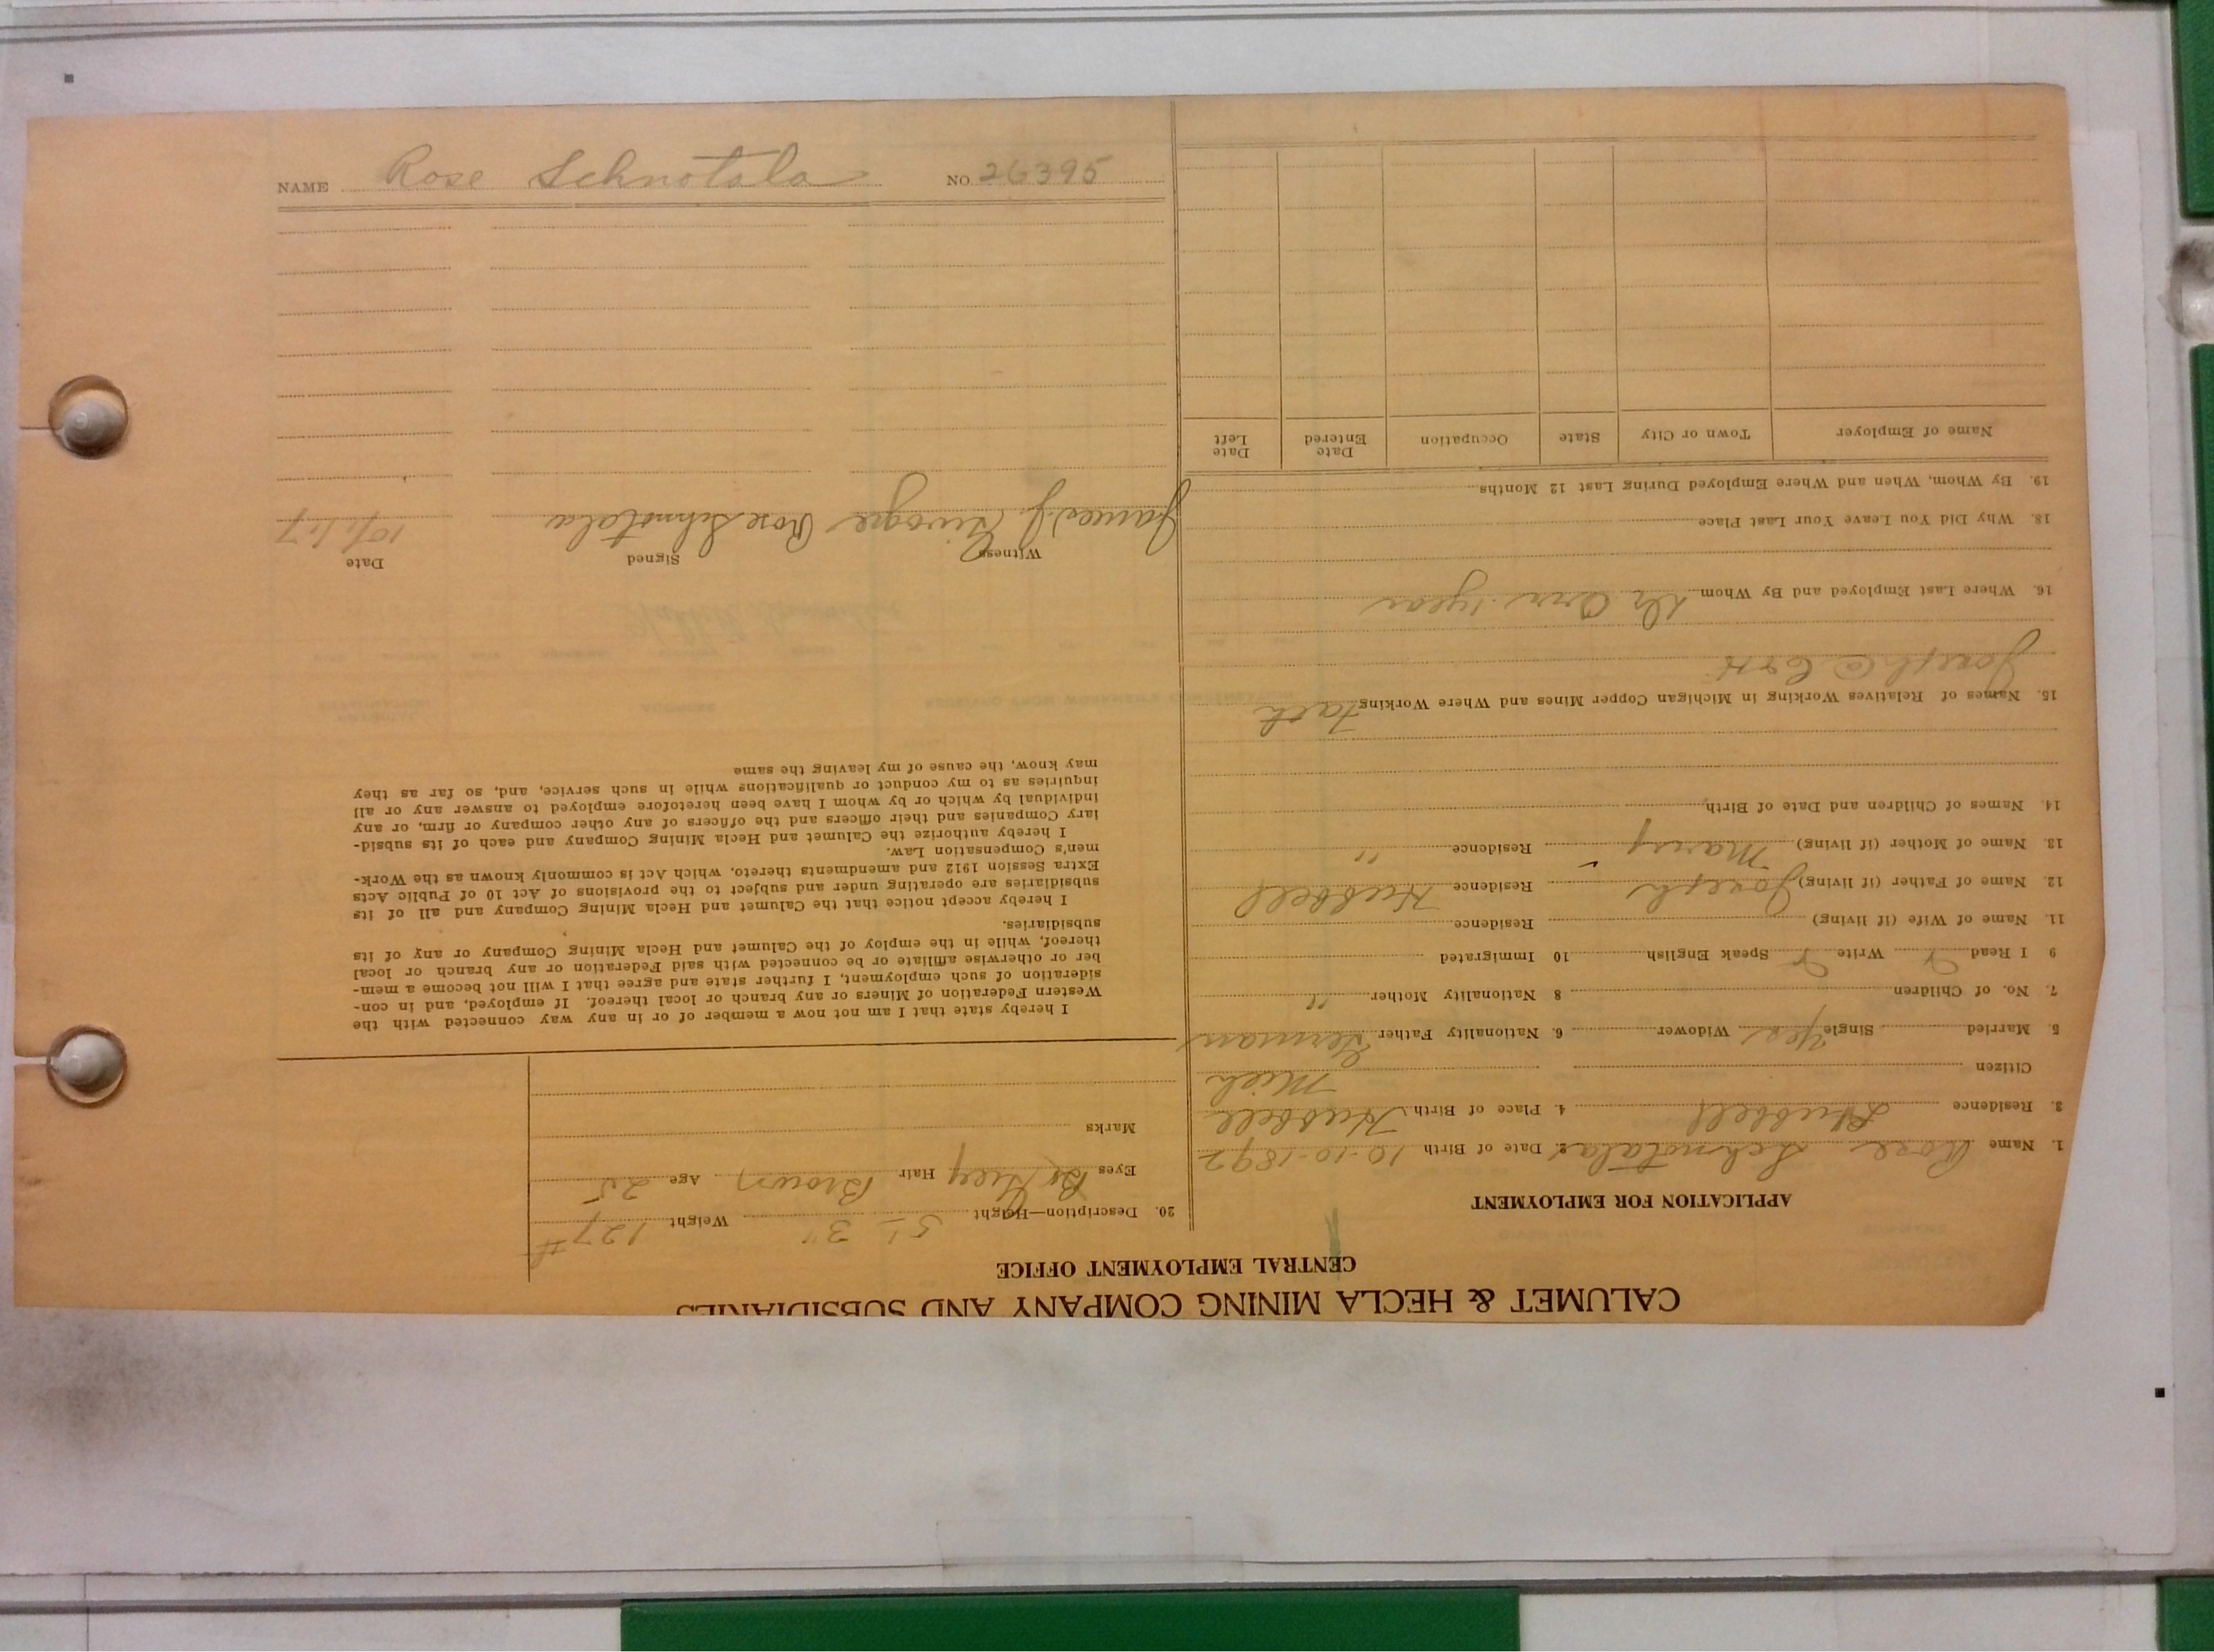 CALUMET & HECLA MINING COMPANY AND SUBSIDIARIES
CENTRAL EMPLOYMENT OFFICE
APPLICATION FOR EMPLOYMENT
1. Name Rose Schnotala 2. Date of Birth 10-10-1892
3. Residence Hubbell 4. Place of Birth Hubbell
Mich
Citizen
5. Married Single Yes Widower 6. Nationality Father German
7. No. of Children 8 Nationality Mother "
9 I Read Write Speak English 10 Immigrated
11. Name of Wife (if living) Residence
12. Name of Father (if living) Joseph Residence Hubbell
13. Name of Mother (if living) Mary Residence "
14. Names of Children and Date of Birth
15. Names of Relatives Working in Michigan Copper Mines and Where Working Fath
Joseph @ C & H
16. Where Last Employed and By Whom Dr Orr 1 year
18. Why Did You Leave Your Last Place
19. By Whom, When and Where Employed During Last 12 Months
Name of Employer Town or City State Occupation Date Entered Date Left
20. Description—Height 5' 3" Weight 127#
Eyes Grey Hair Brown Age 25
Marks
I hereby state that I am not now a member of or in any way connected with the
Western Federation of Miners or any branch or local thereof. If employed, and in con-
sideration of such employment, I further state and agree that I will not become a mem-
ber or otherwise affiliate or be connected with said Federation or any branch or local
thereof, while in the employ of the Calumet and Hecla Mining Company or any of its
subsidiaries.
I hereby accept notice that the Calumet and Hecla Mining Company and all of its
subsidiaries are operating under and subject to the provisions of Act 10 of Public Acts
Extra Session 1912 and amendments thereto, which Act is commonly known as the Work-
men's Compensation Law.
I hereby authorize the Calumet and Hecla Mining Company and each of its subsid-
iary Companies and their officers and the officers of any other company or firm, or any
individual by which or by whom I have been heretofore employed to answer any or all
inquiries as to my conduct or qualifications while in such service, and, so far as they
may know, the cause of my leaving the same
Witness Signed Date
James J. Rose Schnotala 10/1/17
NAME Rose Schnotala NO. 26395